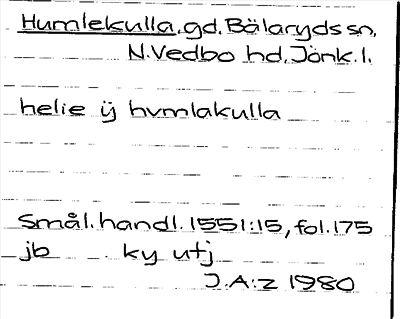 Humlekulla, gd, Bälaryds sn,
N. Vedbo hd, Jönk. l.
helie ÿ hvmlakulla
Smål. handl. 1551:15, fol. 175
jb ky utj
J.A:z 1980